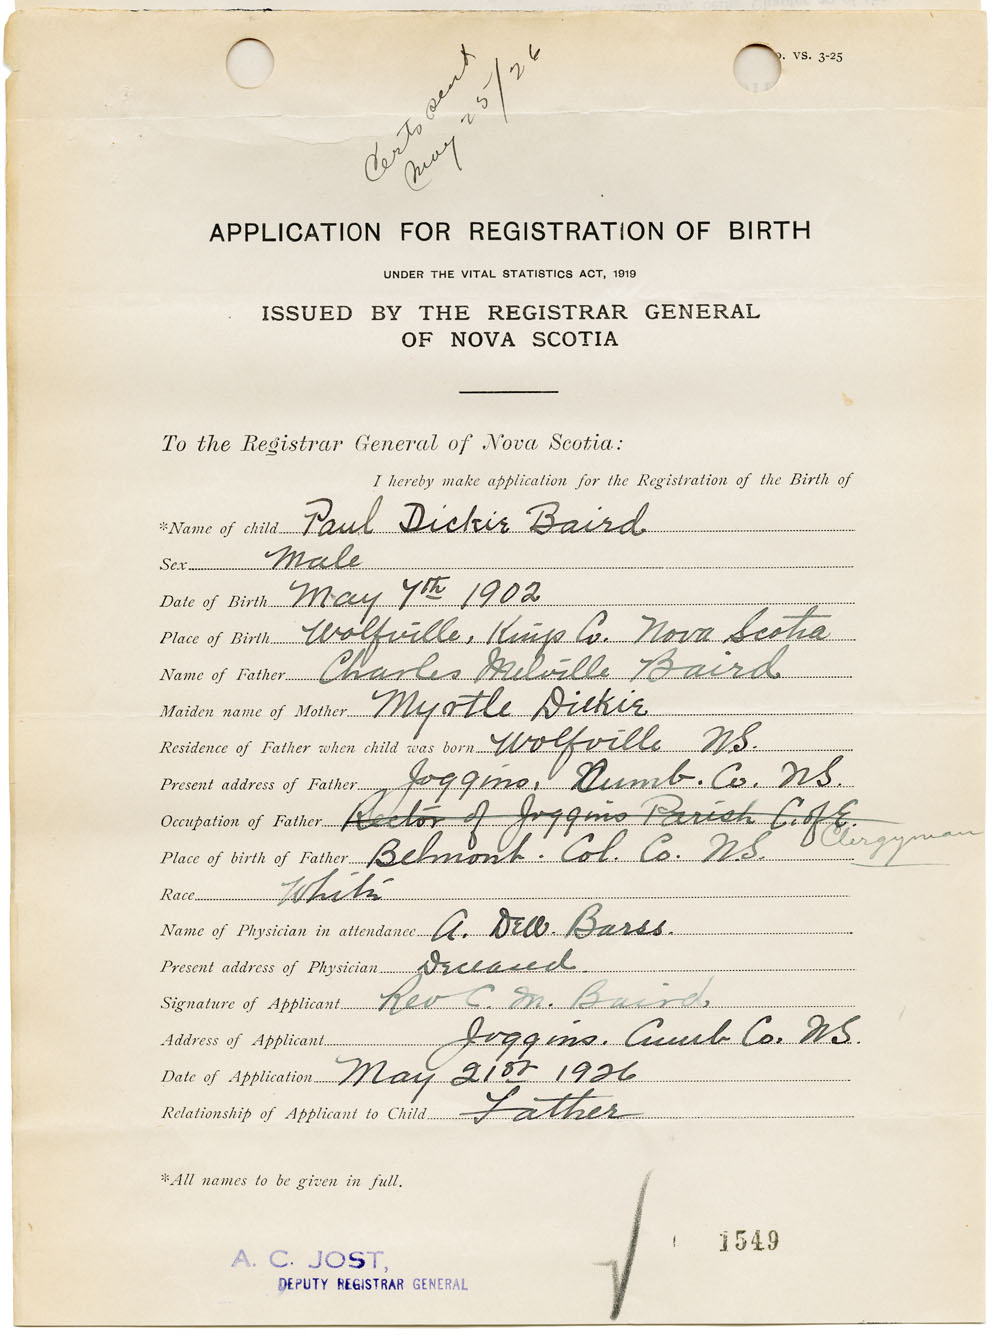 VS. 3-25
Certs sent
May 25/26
APPLICATION FOR REGISTRATION OF BIRTH
UNDER THE VITAL STATISTICS ACT, 1919
ISSUED BY THE REGISTRAR GENERAL
OF NOVA SCOTIA
To the Registrar General of Nova Scotia:
I hereby make application for the Registration of the Birth of
*Name of child Paul Dickie Baird
Sex Male
Date of Birth May 7th 1902
Place of Birth Wolfville, Kings Co. Nova Scotia
Name of Father Charles Melville Baird
Maiden name of Mother Myrtle Dickie
Residence of Father when child was born Wolfville NS.
Present address of Father Joggins, Cumb. Co. NS.
Occupation of Father Rector of Joggins Parish C. of E.
Clergyman
Place of birth of Father Belmont. Col. Co. NS.
Race White
Name of Physician in attendance A. DeW. Barss.
Present address of Physician Deceased
Signature of Applicant Rev C. M. Baird.
Address of Applicant Joggins. Cumb Co. NS.
Date of Application May 21st 1926
Relationship of Applicant to Child Father
*All names to be given in full.
1549
A. C. JOST,
DEPUTY REGISTRAR GENERAL